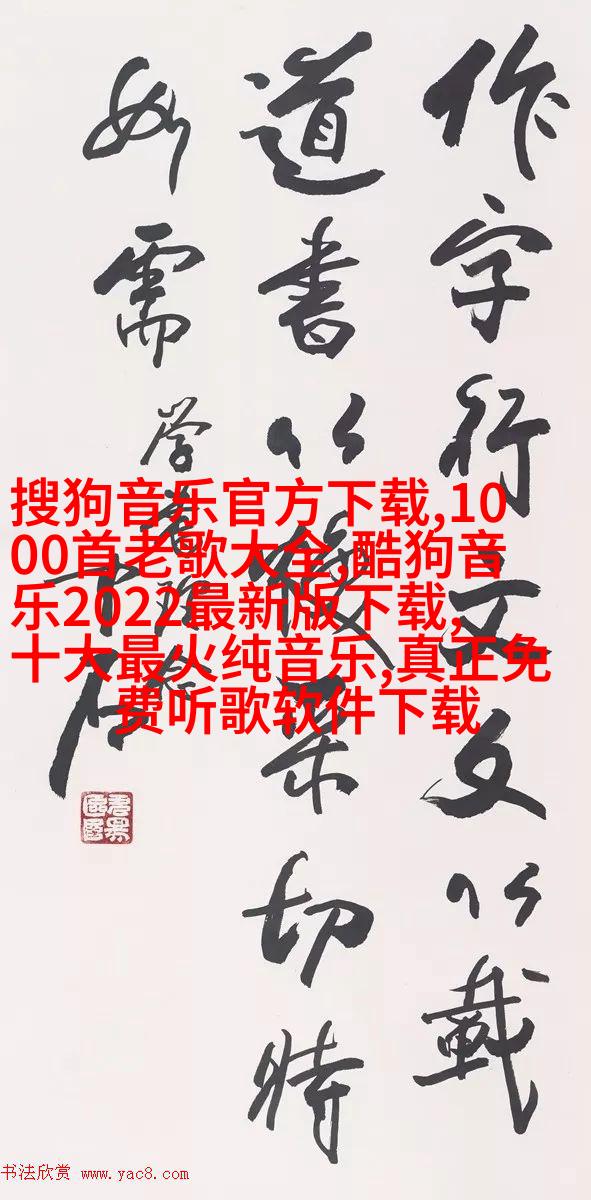 作字行文文以載
道書以采切時
如需
搜狗音乐官方下载,10
00首老歌大全,酷狗音
乐2022最新版下载,
十大最火纯音乐,真正免
费听歌软件下载
书法欣赏 www.yac8.com